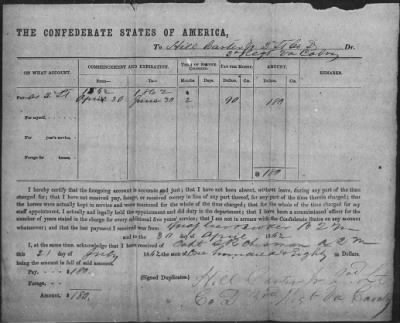 THE CONFEDERATE STATES OF AMERICA,
To Hill Carter Jr 2 Lt Co D Dr.
3 Regt Va Cavy
ON WHAT ACCOUNT. COMMENCEMENT AND EXPIRATION. TERM OF SERVICE CHARGED. PAY PER MONTH. AMOUNT. REMARKS.
From— To— Months Days. Dollars. Cts. Dollars. Cts.
1862 1862
Pay as 2 Lt April 30 June 30 2 90 180
For myself,
For year's service,
Forage for horses,
$ 180
I hereby certify that the foregoing account is accurate and just; that I have not been absent, without leave, during any part of the time charged
for; that I have not received pay, forage, or received money in lieu of any part thereof, for any part of the time therein charged; that
the horses were actually kept in service and were mustered for the whole of the time charged; that for the whole of the time charged for my
staff appointment, I actually and legally held the appointment and did duty in the department; that I have been a commissioned officer for the
number of years stated in the charge for every additional five years' service; that I am not in arrears with the Confederate States on any account
whatsoever; and that the last payment I received was from A 2 M
and to the 30 of April 1862
I, at the same time acknowledge that I have received of Capt A 2 M
this 21 day of July 1862 One hundred & Eighty Dollars,
being the amount in full of said account.
Pay, - - $ 180.
Forage, - -
Amount, $ 180.
(Signed Duplicates.)
Hill Carter Jr 2nd Lieut
Co D 3rd Regt Va Cavalry